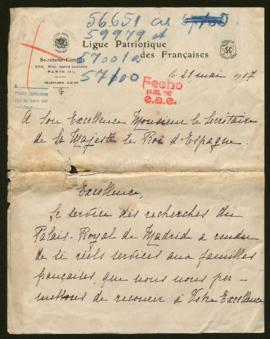 56651 al
59979 d
57001a
57100
Ligue Patriotique
des Françaises
Secrétariat
PARIS
le 21 mai 1917
Fecho
e.a.e.
A Son Excellence Monsieur le Secrétaire
de la Majesté le Roi d'Espagne.
Excellence,
Le service des recherches du
Palais-Royal de Madrid a rendu
de si réels services aux familles
françaises, que nous nous per-
mettons de recourir à Votre Excellence